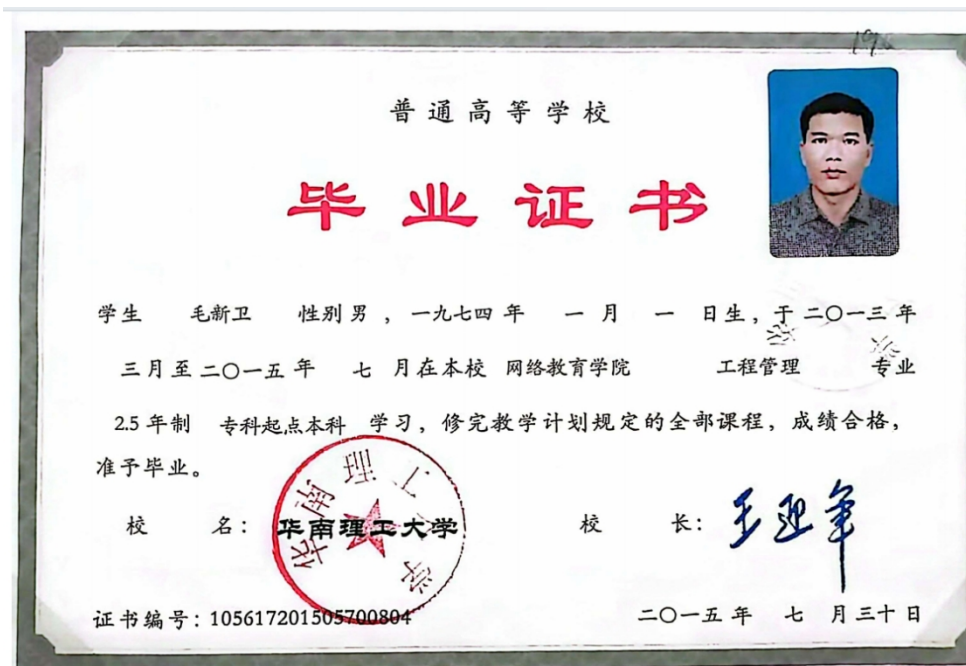 普通高等学校
毕业证书
学生 毛新卫 性别 男 ，一九七四 年 一 月 一 日生，于 二〇一三 年
三月至 二〇一五 年 七 月在本校 网络教育学院 工程管理 专业
2.5 年制 专科起点本科 学习，修完教学计划规定的全部课程，成绩合格，
准予毕业。
校 名：华南理工大学 校 长：王迎军
证书编号：105617201505700804 二〇一五 年 七 月三十日